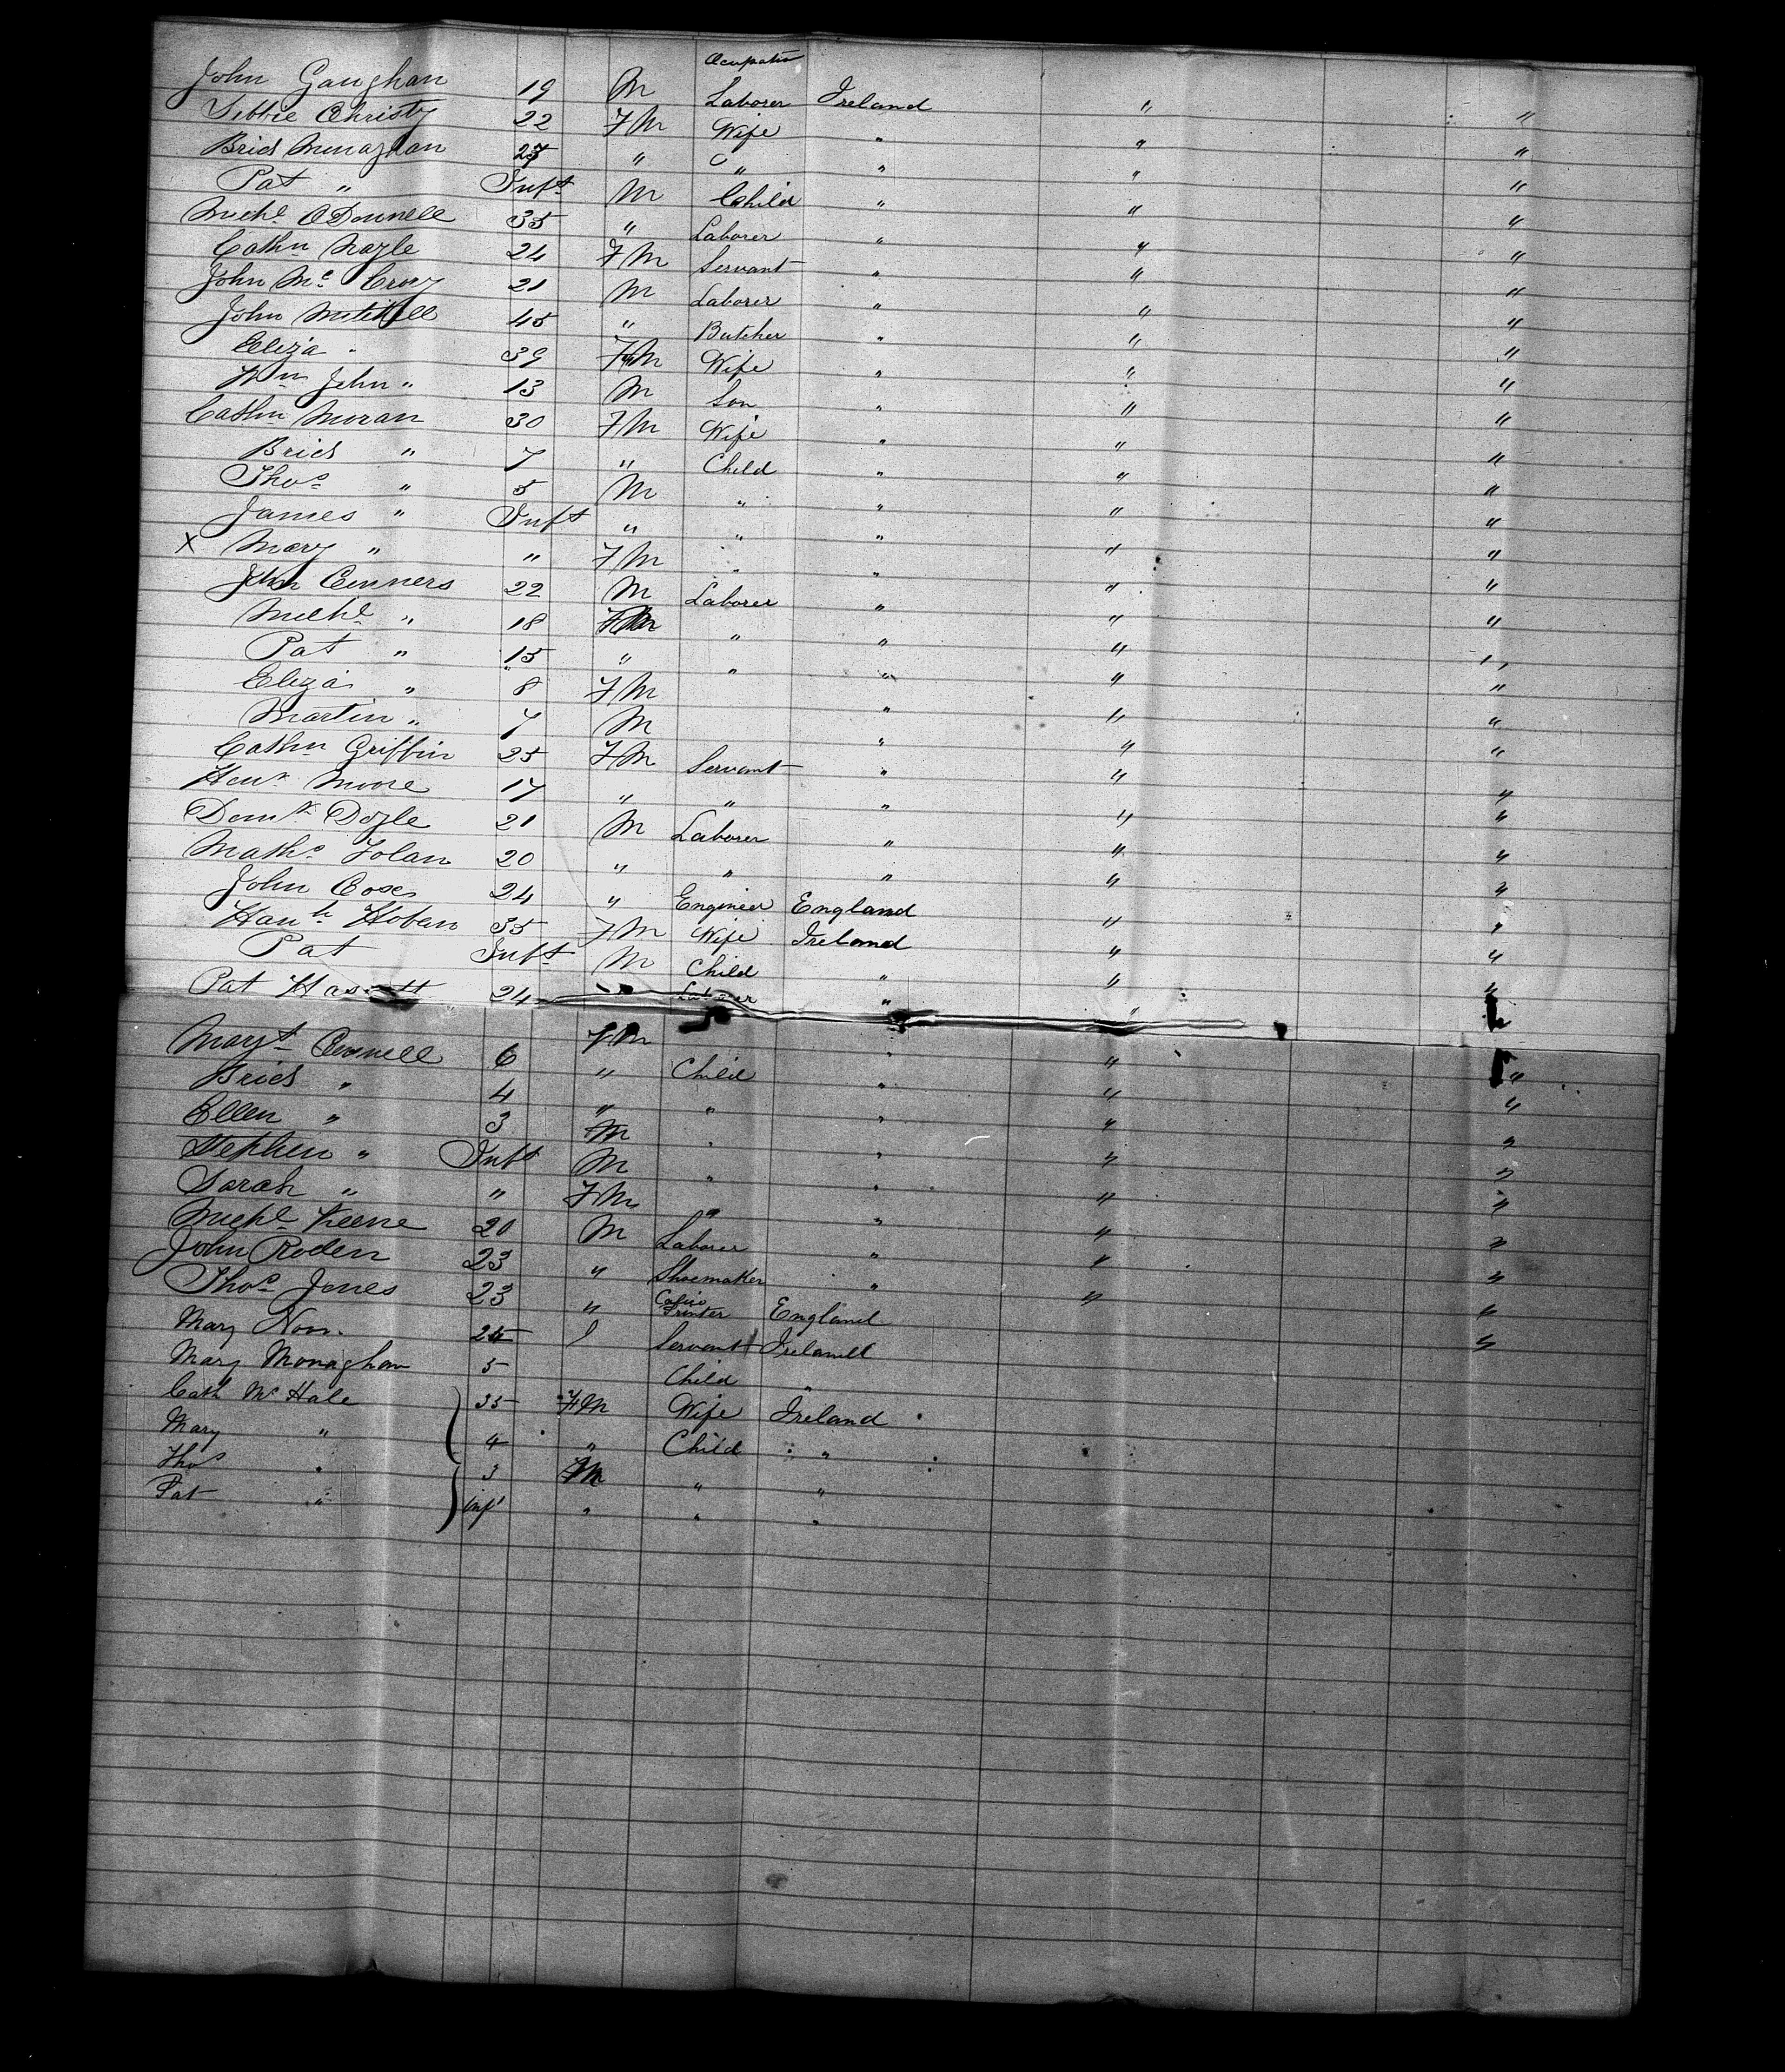 Ocupation
John Gaughan 19 M Laborer Ireland " "
Sibbie Christy 22 FM Wife " " "
Brid Monaghan 27 " " " " "
Pat " Inft M Child " " "
Michl O'Donnell 35 " Laborer " " "
Cathn Nayle 24 FM Servant " " "
John Mc 21 M Laborer " " "
John Mitchell 45 " Butcher " " "
Eliza " 39 FM Wife " " "
Wm John " 13 M Son " " "
Cathn Moran 30 FM Wife " " "
Brid " 7 " Child " " "
Thos " 5 M " " " "
James " Inft " " " " "
X Mary " " FM " " " "
John Conners 22 M Laborer " " "
Michl " 18 M " " " "
Pat " 15 " " " " "
Eliza " 8 FM " " "
Martin " 7 M " " "
Cathn Griffin 25 FM Servant " " "
Moore 17 " " " " "
Domk Doyle 21 M Laborer " " "
Maths Folan 20 " " " " "
John Cox 24 " Engineer England " "
Hanh Hoban 35 FM Wife Ireland " "
Pat Inft M Child " " "
Pat 24 Laborer " "
FM "
Margt Connell 6 " Child " " "
Brid " 4 " " " " "
Ellen " 3 M " " " "
Stephen " Inft M " " " "
Sarah " " FM " " " "
Michl Keene 20 M Laborer " " "
John Roden 23 " Shoemaker " " "
Thos Jones 23 " Calico Printer England " "
Mary Noon 24 Servant Ireland "
Mary Monaghan 5 Child "
Cath Mc Hale 35 FM Wife Ireland
Mary " 4 " Child "
Thos " 3 M " "
Pat " inft " " "